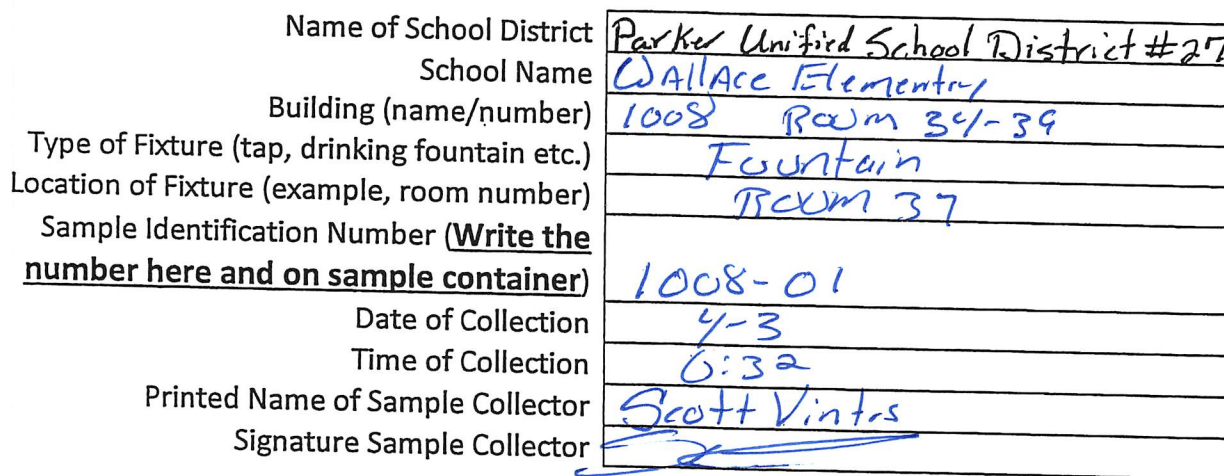 Name of School District Parker Unified School District #27
School Name Wallace Elementry
Building (name/number) 1008 Room 34-39
Type of Fixture (tap, drinking fountain etc.) Fountain
Location of Fixture (example, room number) Room 37
Sample Identification Number (Write the
number here and on sample container) 1008-01
Date of Collection 4-3
Time of Collection 6:32
Printed Name of Sample Collector Scott
Signature Sample Collector